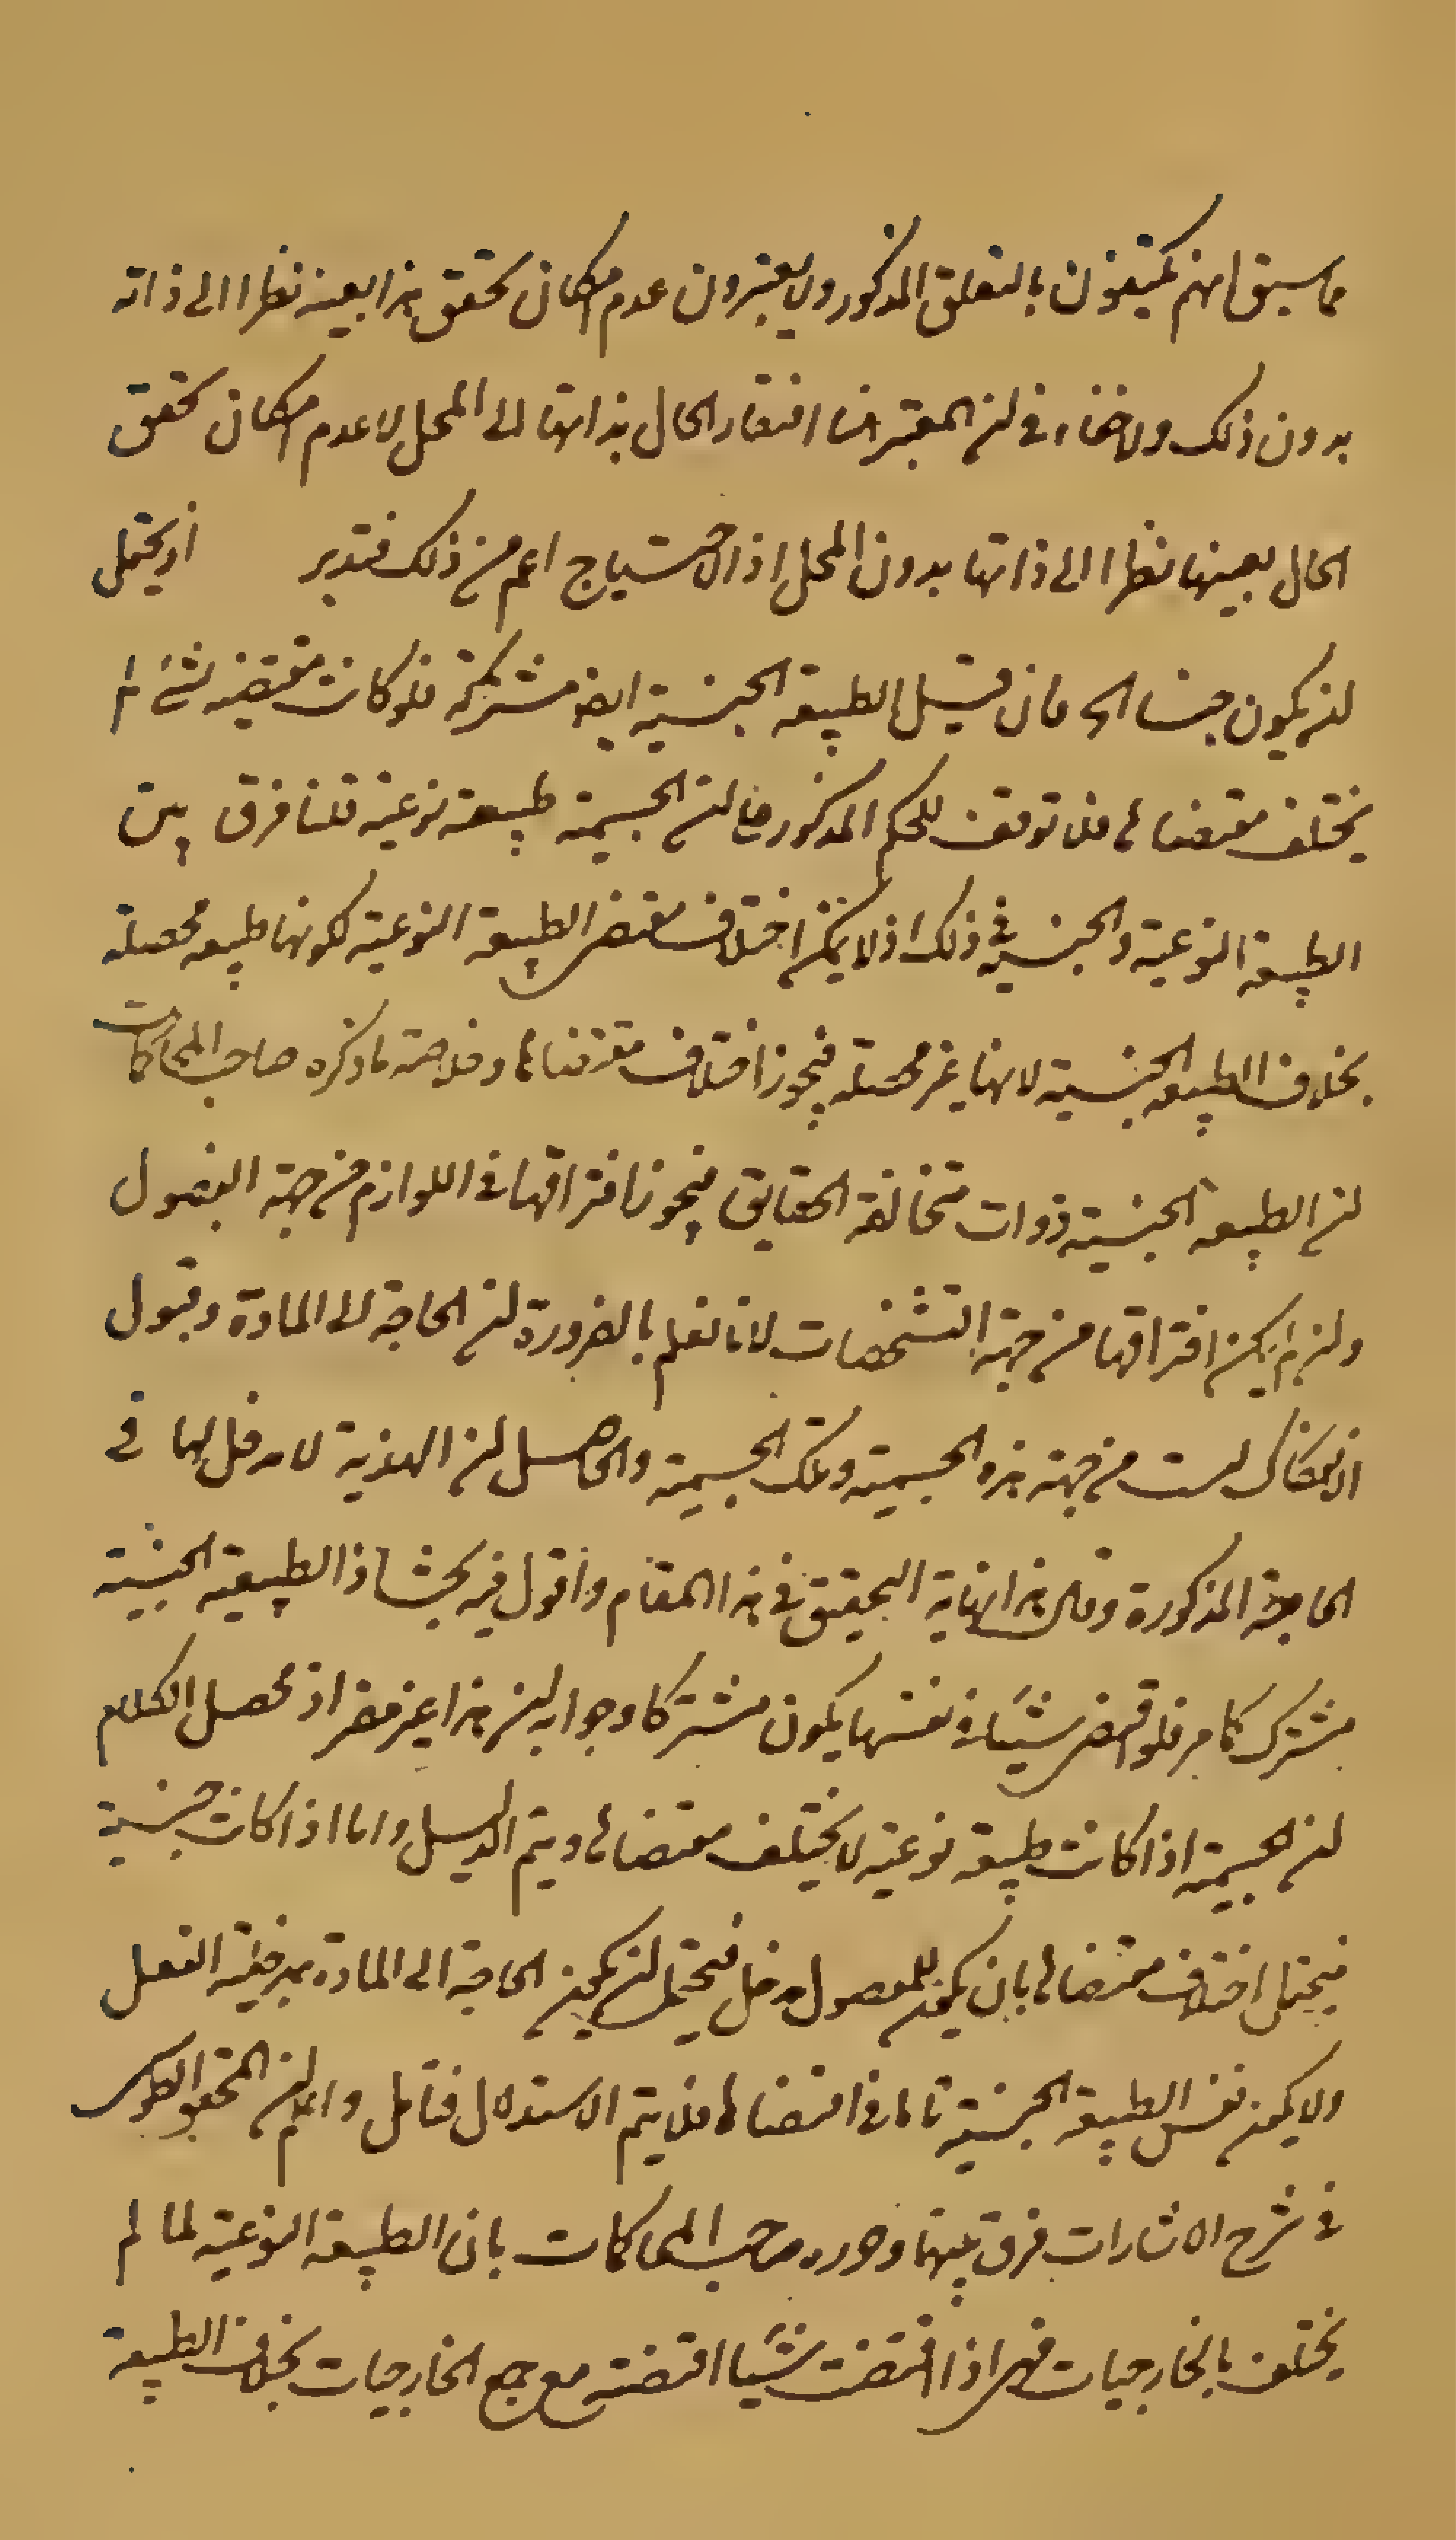 مما سبق انهم يكتفون بالتعلق المذكور ولا يعتبرون عدم امكان تحقق هذا بعينه نظرا الى ذاته
بدون ذلك ولا خفاء في ان المعتبر هنا افتقار الحال بذاتها الى المحل لا عدم امكان تحقق
الحال بعينها نظرا الى ذاتها بدون المحل اذ الاحتياج اعم من ذلك فتدبر اذ يحتمل
ان يكون جنسا الخ فان قيل الطبيعة الجنسية ايضا مشتركة فلو كانت مقتضية لشئ لم
يختلف مقتضاها فلا توقف للحكم المذكور على ان الجسمية طبيعة نوعية قلنا فرق بين
الطبيعة النوعية والجنسية في ذلك اذ لا يمكن اختلاف مقتضى الطبيعة النوعية لكونها طبيعه محصلة
بخلاف الطبيعه الجنسية لانها غير محصلة فيجوز اختلاف مقتضاها وخلاصة ما ذكره صاحب المحاكمات
ان الطبيعة الجنسية ذوات متخالفة الحقايق فيجوز افتراقها في اللوازم من جهة الفصول
وان لم يكن افتراقها من جهة التشخصات لانا نعلم بالضرورة ان الحاجة الى المادة وقبول
الانفكاك ليست من جهة هذه الجسمية وتلك الجسمية والحاصل ان الهذية لا مدخل لها في
الحاجة المذكورة وقال هذا نهاية التحقيق في هذا المقام واقول فيه بحث اذ الطبيعة الجنسية
مشترك كما مر فلو اقتضى شيئا في نفسها يكون مشتركا وجوابه ان هذا غير مضر اذ محصل الكلام
ان الجسمية اذا كانت طبيعة نوعية لا يختلف مقتضاها ويتم الدليل واما اذا كانت جنسية
فيحتمل اختلاف مقتضاها بان يكون للفصول مدخل فيحتمل ان يكون الحاجة الى المادة بمدخلية الفصل
ولا يكون نفس الطبيعة الجنسية تاما في اقتضاها فلا يتم الاستدلال فتامل واعلم ان المحقق الطوسي
في شرح الاشارات فرق بينهما وحرره صاحب المحاكمات بان الطبيعة النوعية لما لم
يختلف بالخارجيات فهي اذا اقتضت شيئا اقتضته مع جميع الخارجيات بخلاف الطبيعة